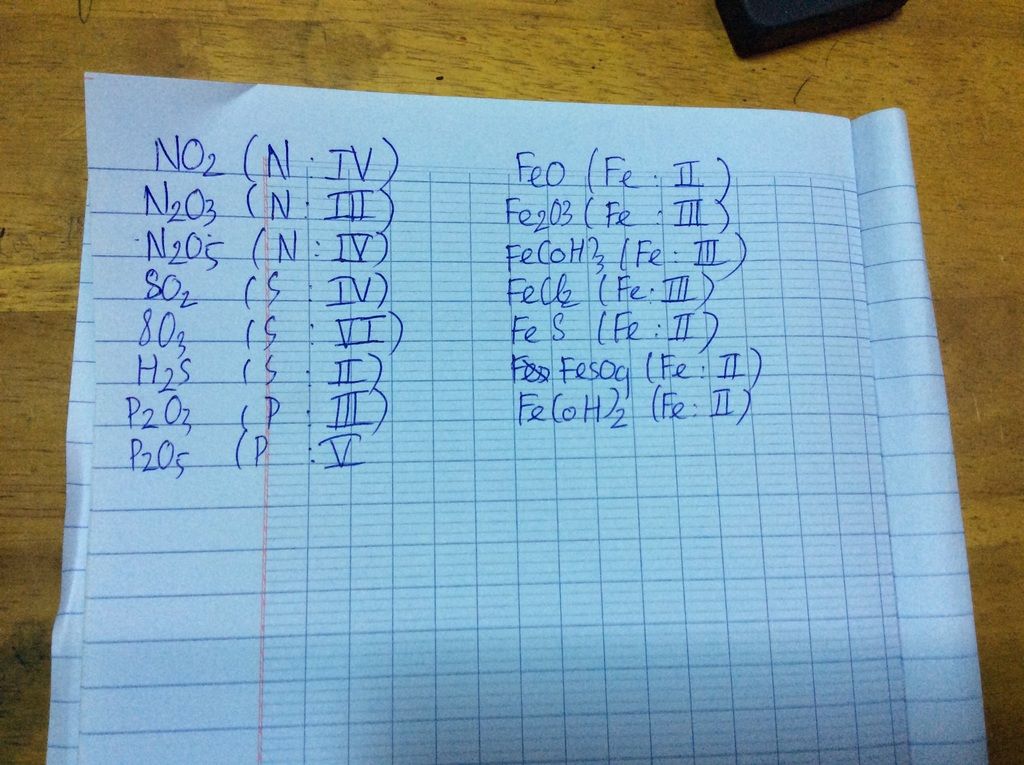 NO2 (N : IV)
N2O3 (N : III)
N2O5 (N : IV)
SO2 (S : IV)
SO3 (S : VI)
H2S (S : II)
P2O3 (P : III)
P2O5 (P : V
FeO (Fe : II)
Fe2O3 (Fe : III)
Fe(OH)3 (Fe : III)
FeCl2 (Fe : III)
FeS (Fe : II)
FeSO4 (Fe : II)
Fe(OH)2 (Fe : II)